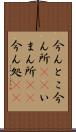 今んとこ今
ん所い
まん所
今ん処